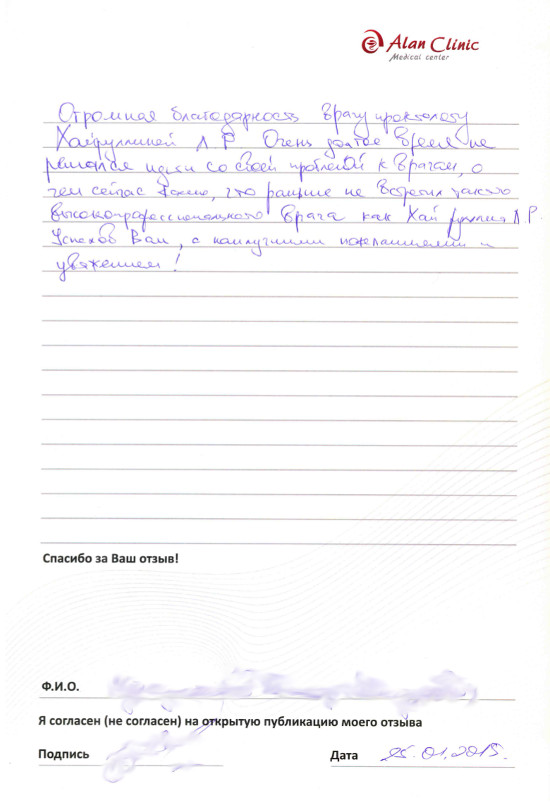 Alan Clinic
Medical center
Огромная благодарность врачу проктологу
Хайруллиной Л.Р Очень долгое время не
решался идти со своей проблемой к врачам, о
чем сейчас жалею, что раньше не встретил такого
высокопрофессионального врача как Хайруллина Л.Р.
Успехов Вам, с наилучшими пожеланиями и
уважением!
Спасибо за Ваш отзыв!
Ф.И.О.
Я согласен (не согласен) на открытую публикацию моего отзыва
Подпись
Дата 25.01.2015.